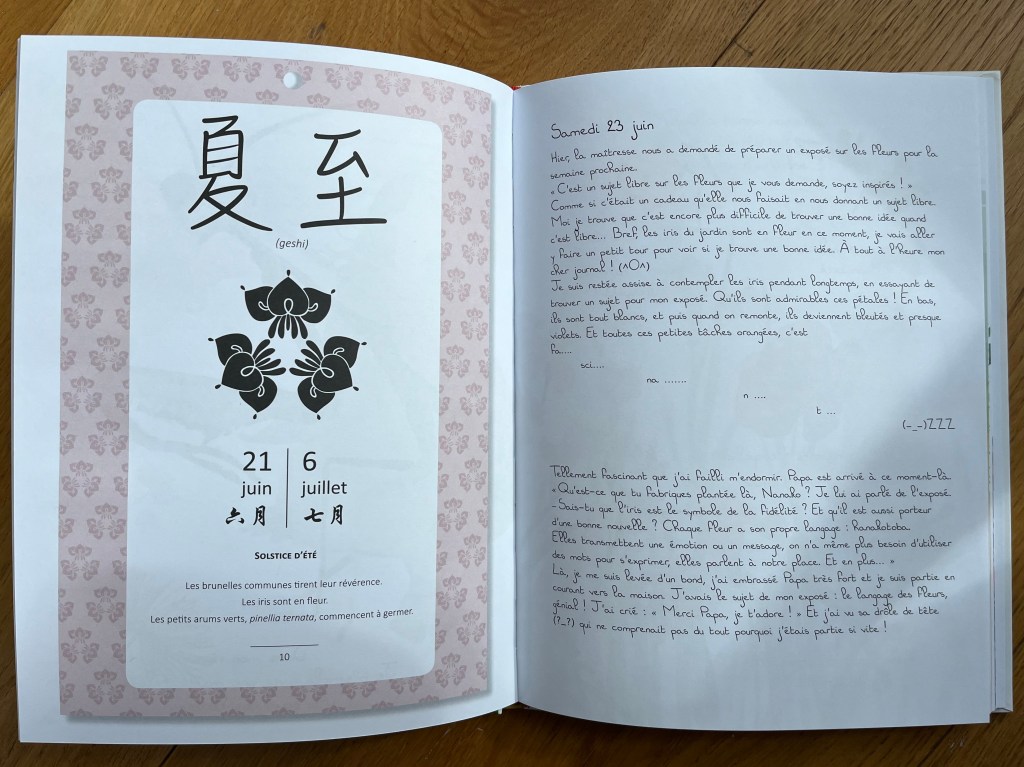 夏至
(geshi)
21 | 6
juin | juillet
六月 | 七月
SOLSTICE D'ÉTÉ
Les brunelles communes tirent leur révérence.
Les iris sont en fleur.
Les petits arums verts, pinellia ternata, commencent à germer.
10
Samedi 23 juin
Hier, la maîtresse nous a demandé de préparer un exposé sur les fleurs pour la
semaine prochaine.
« C'est un sujet libre sur les fleurs que je vous demande, soyez inspirés ! »
Comme si c'était un cadeau qu'elle nous faisait en nous donnant un sujet libre.
Moi je trouve que c'est encore plus difficile de trouver une bonne idée quand
c'est libre... Bref, les iris du jardin sont en fleur en ce moment, je vais aller
y faire un petit tour pour voir si je trouve une bonne idée. À tout à l'heure mon
cher journal ! (^O^)
Je suis restée assise à contempler les iris pendant longtemps, en essayant de
trouver un sujet pour mon exposé. Qu'ils sont admirables ces pétales ! En bas,
ils sont tout blancs, et puis quand on remonte, ils deviennent bleutés et presque
violets. Et toutes ces petites tâches orangées, c'est
fa....
sci....
na .......
n ....
t ...
(-_-)ZZZ
Tellement fascinant que j'ai failli m'endormir. Papa est arrivé à ce moment-là.
« Qu'est-ce que tu fabriques plantée là, Nanako ? Je lui ai parlé de l'exposé.
- Sais-tu que l'iris est le symbole de la fidélité ? Et qu'il est aussi porteur
d'une bonne nouvelle ? Chaque fleur a son propre langage : Hanakotoba.
Elles transmettent une émotion ou un message, on n'a même plus besoin d'utiliser
des mots pour s'exprimer, elles parlent à notre place. Et en plus... »
Là, je me suis levée d'un bond, j'ai embrassé Papa très fort et je suis partie en
courant vers la maison. J'avais le sujet de mon exposé : le langage des fleurs,
génial ! J'ai crié : « Merci Papa, je t'adore ! » Et j'ai vu sa drôle de tête
(?_?) qui ne comprenait pas du tout pourquoi j'étais partie si vite !